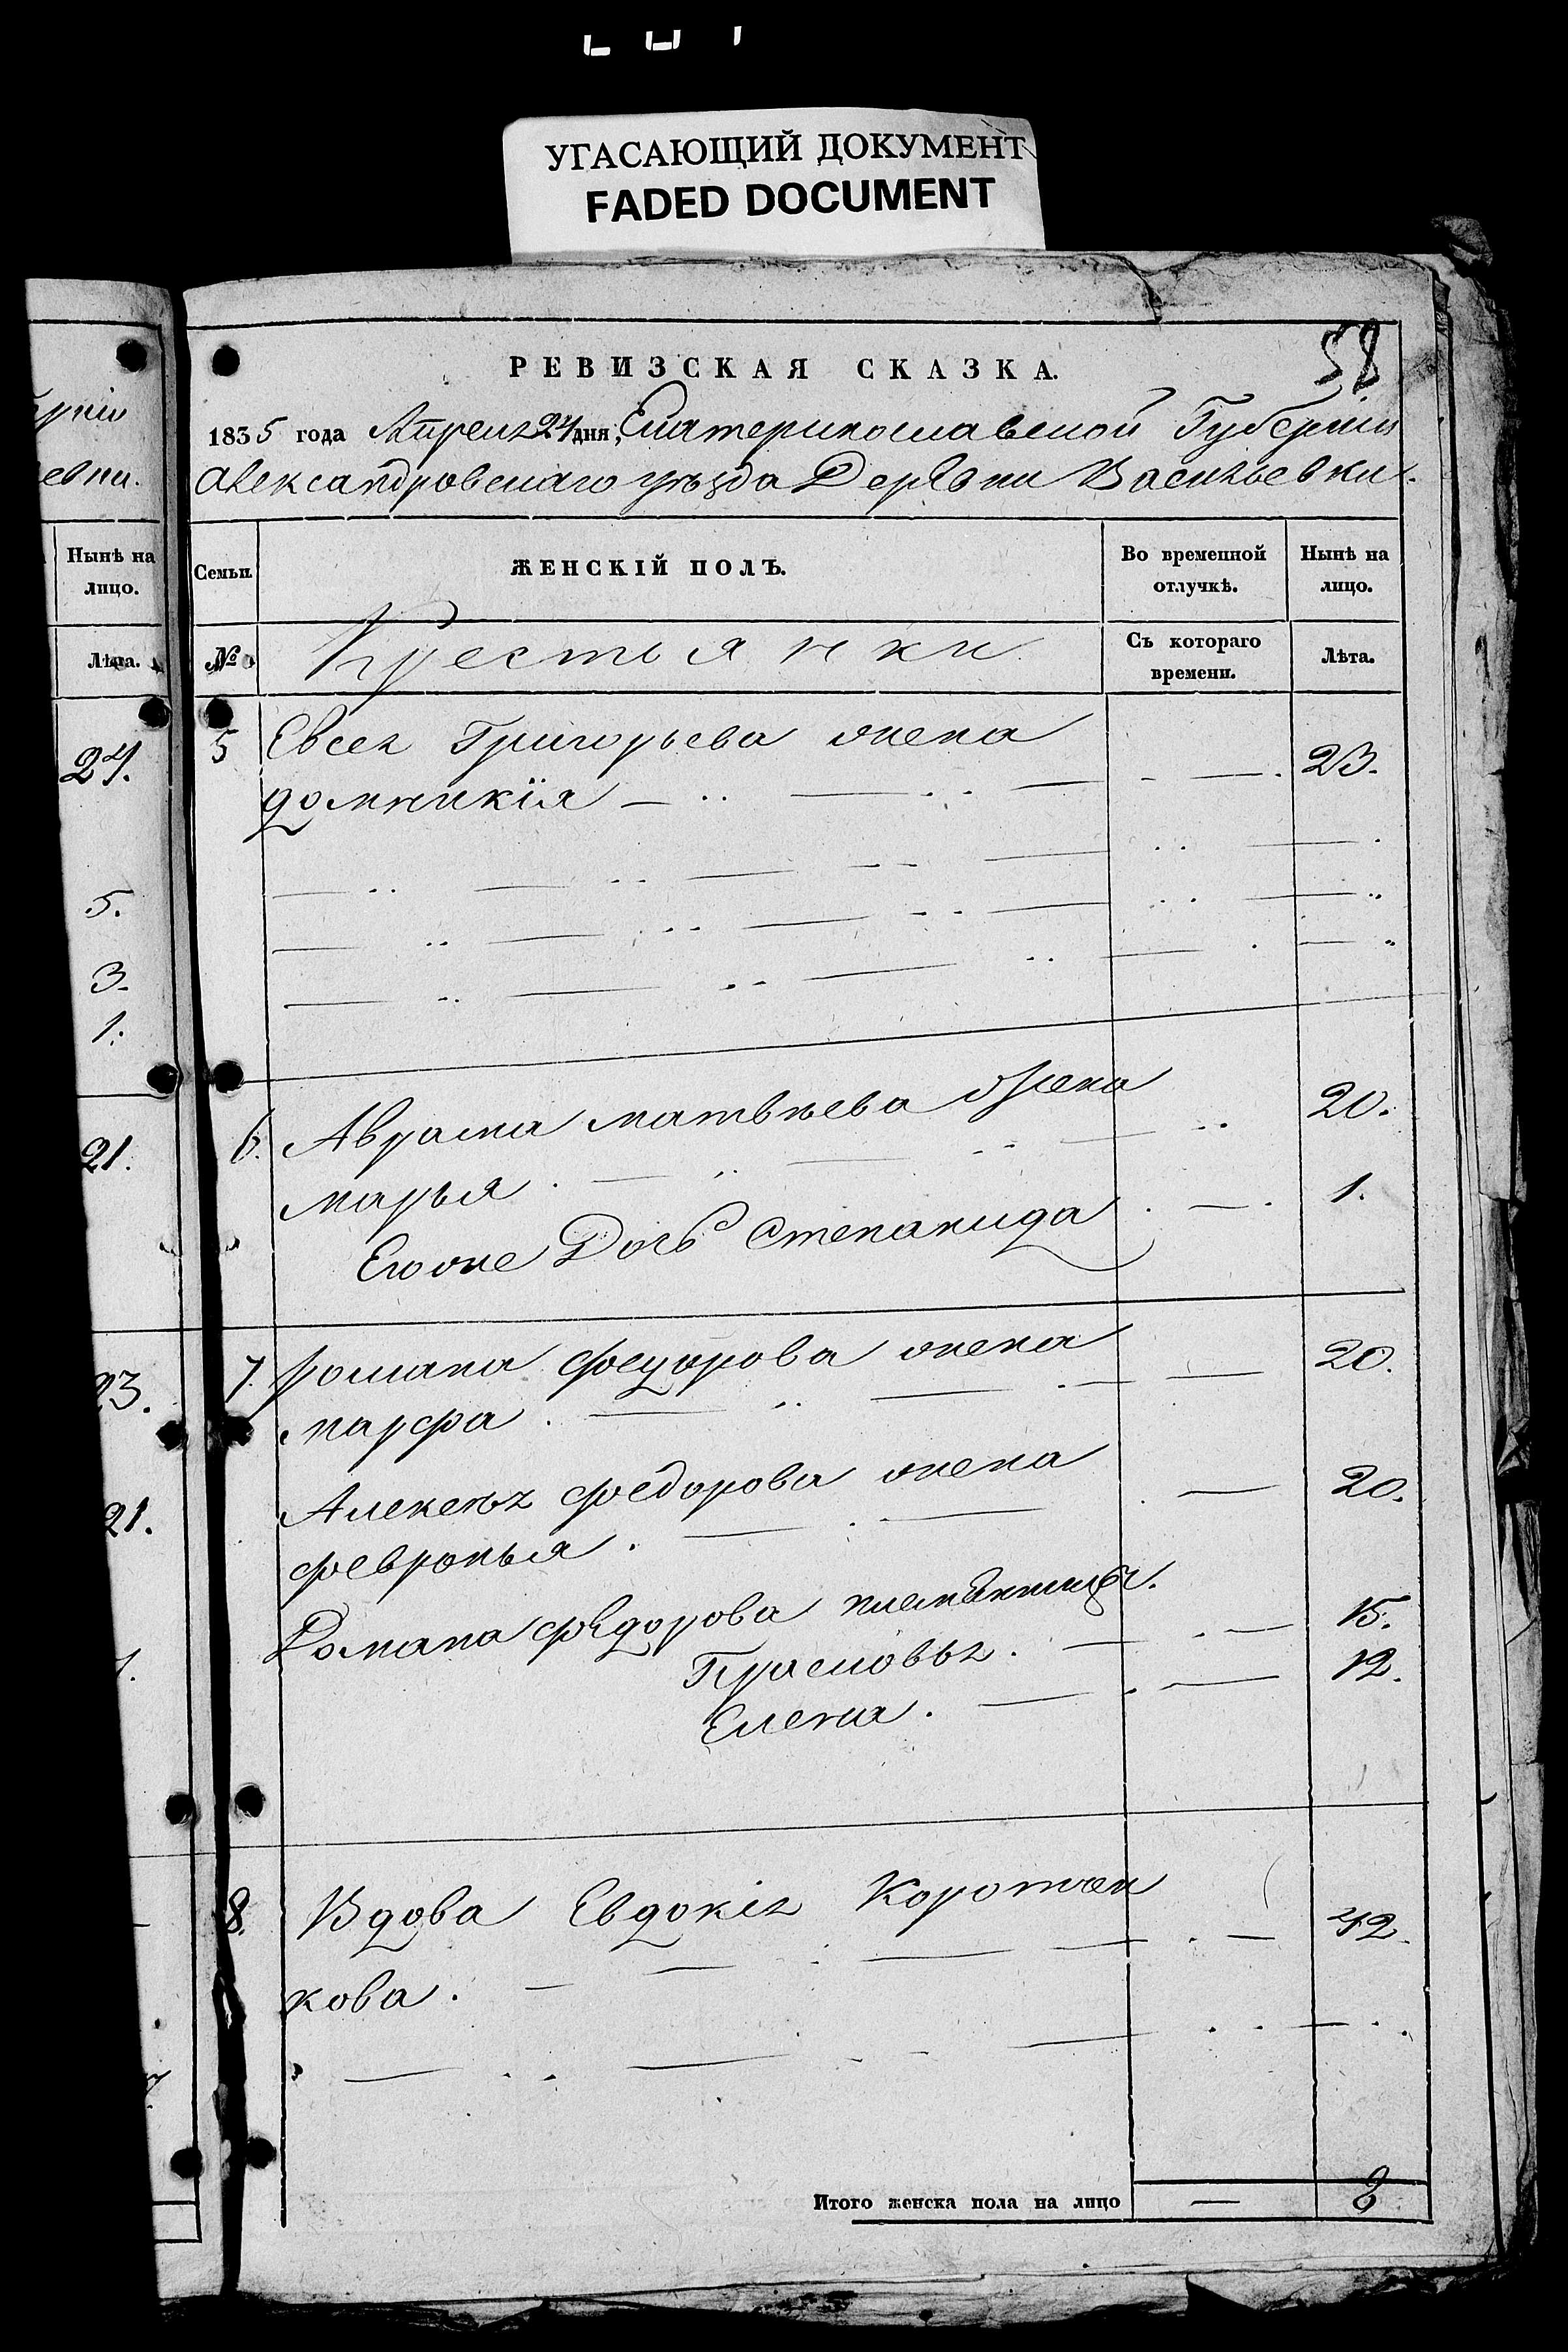 УГАСАЮЩИЙ ДОКУМЕНТ
FADED DOCUMENT
58
РЕВИЗСКАЯ СКАЗКА.
1835 года Апреля 24 дня, Екатеринославской Губерніи
Александровскаго уѣзда Деревни Васильевки.
евни.
Ныне на лицо.
Лѣта.
24.
5.
3.
1.
21.
23.
21.
Семьи. ЖЕНСКІЙ ПОЛЪ. Во временной отлучкѣ. Нынѣ на лицо.
№ Крестьянки Съ котораго времени. Лѣта.
5 Евсея Григорьева жена
домникія 23.
6. Авраама матвѣева жена 20.
марья
Егоже Дочь Степанида 1.
7. романа федорова жена 20.
марфа
Алексѣя федорова жена 20.
февронья
Романа федорова племянницы.
15.
Елена. 12.
8. Вдова Евдокія Коротчен
кова. 42.
Итого женска пола на лицо — 8